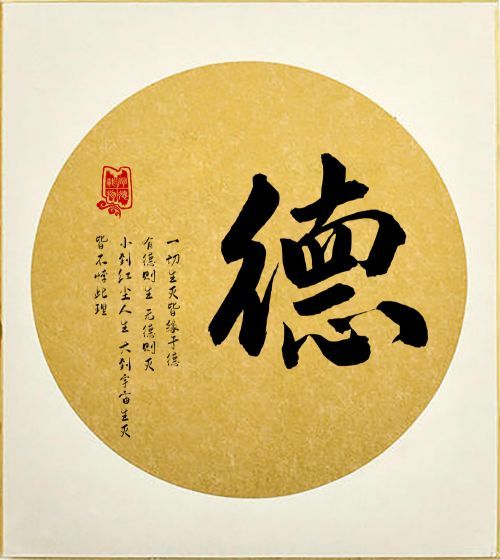 德
一切生灭皆缘于德
有德则生 无德则灭
小到红尘人生 大到宇宙生灭
皆不悖此理